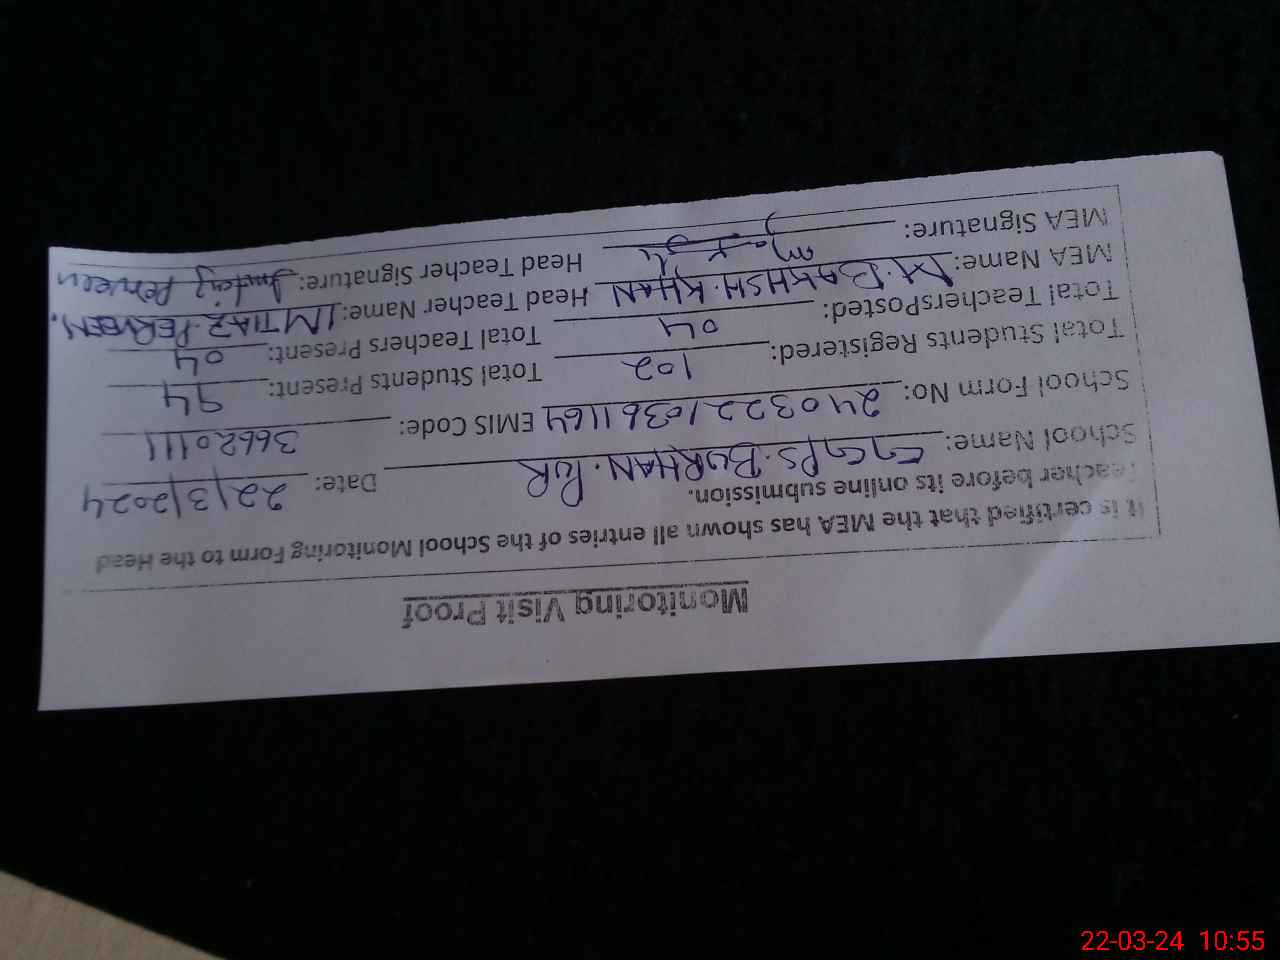 Monitoring Visit Proof
It is certified that the MEA has shown all entries of the School Monitoring Form to the Head
Teacher before its online submission.
School Name: GGPS. BURHAN. PUR Date: 22/3/2024
School Form No: 24032210361164 EMIS Code: 36620111
Total Students Registered: 102 Total Students Present: 94
Total TeachersPosted: 04 Total Teachers Present: 04
MEA Name: M. BAKHSH. KHAN Head Teacher Name: IMTIAZ. PERVEEN.
MEA Signature: Head Teacher Signature: Imtiaz Perveen
22-03-24 10:55